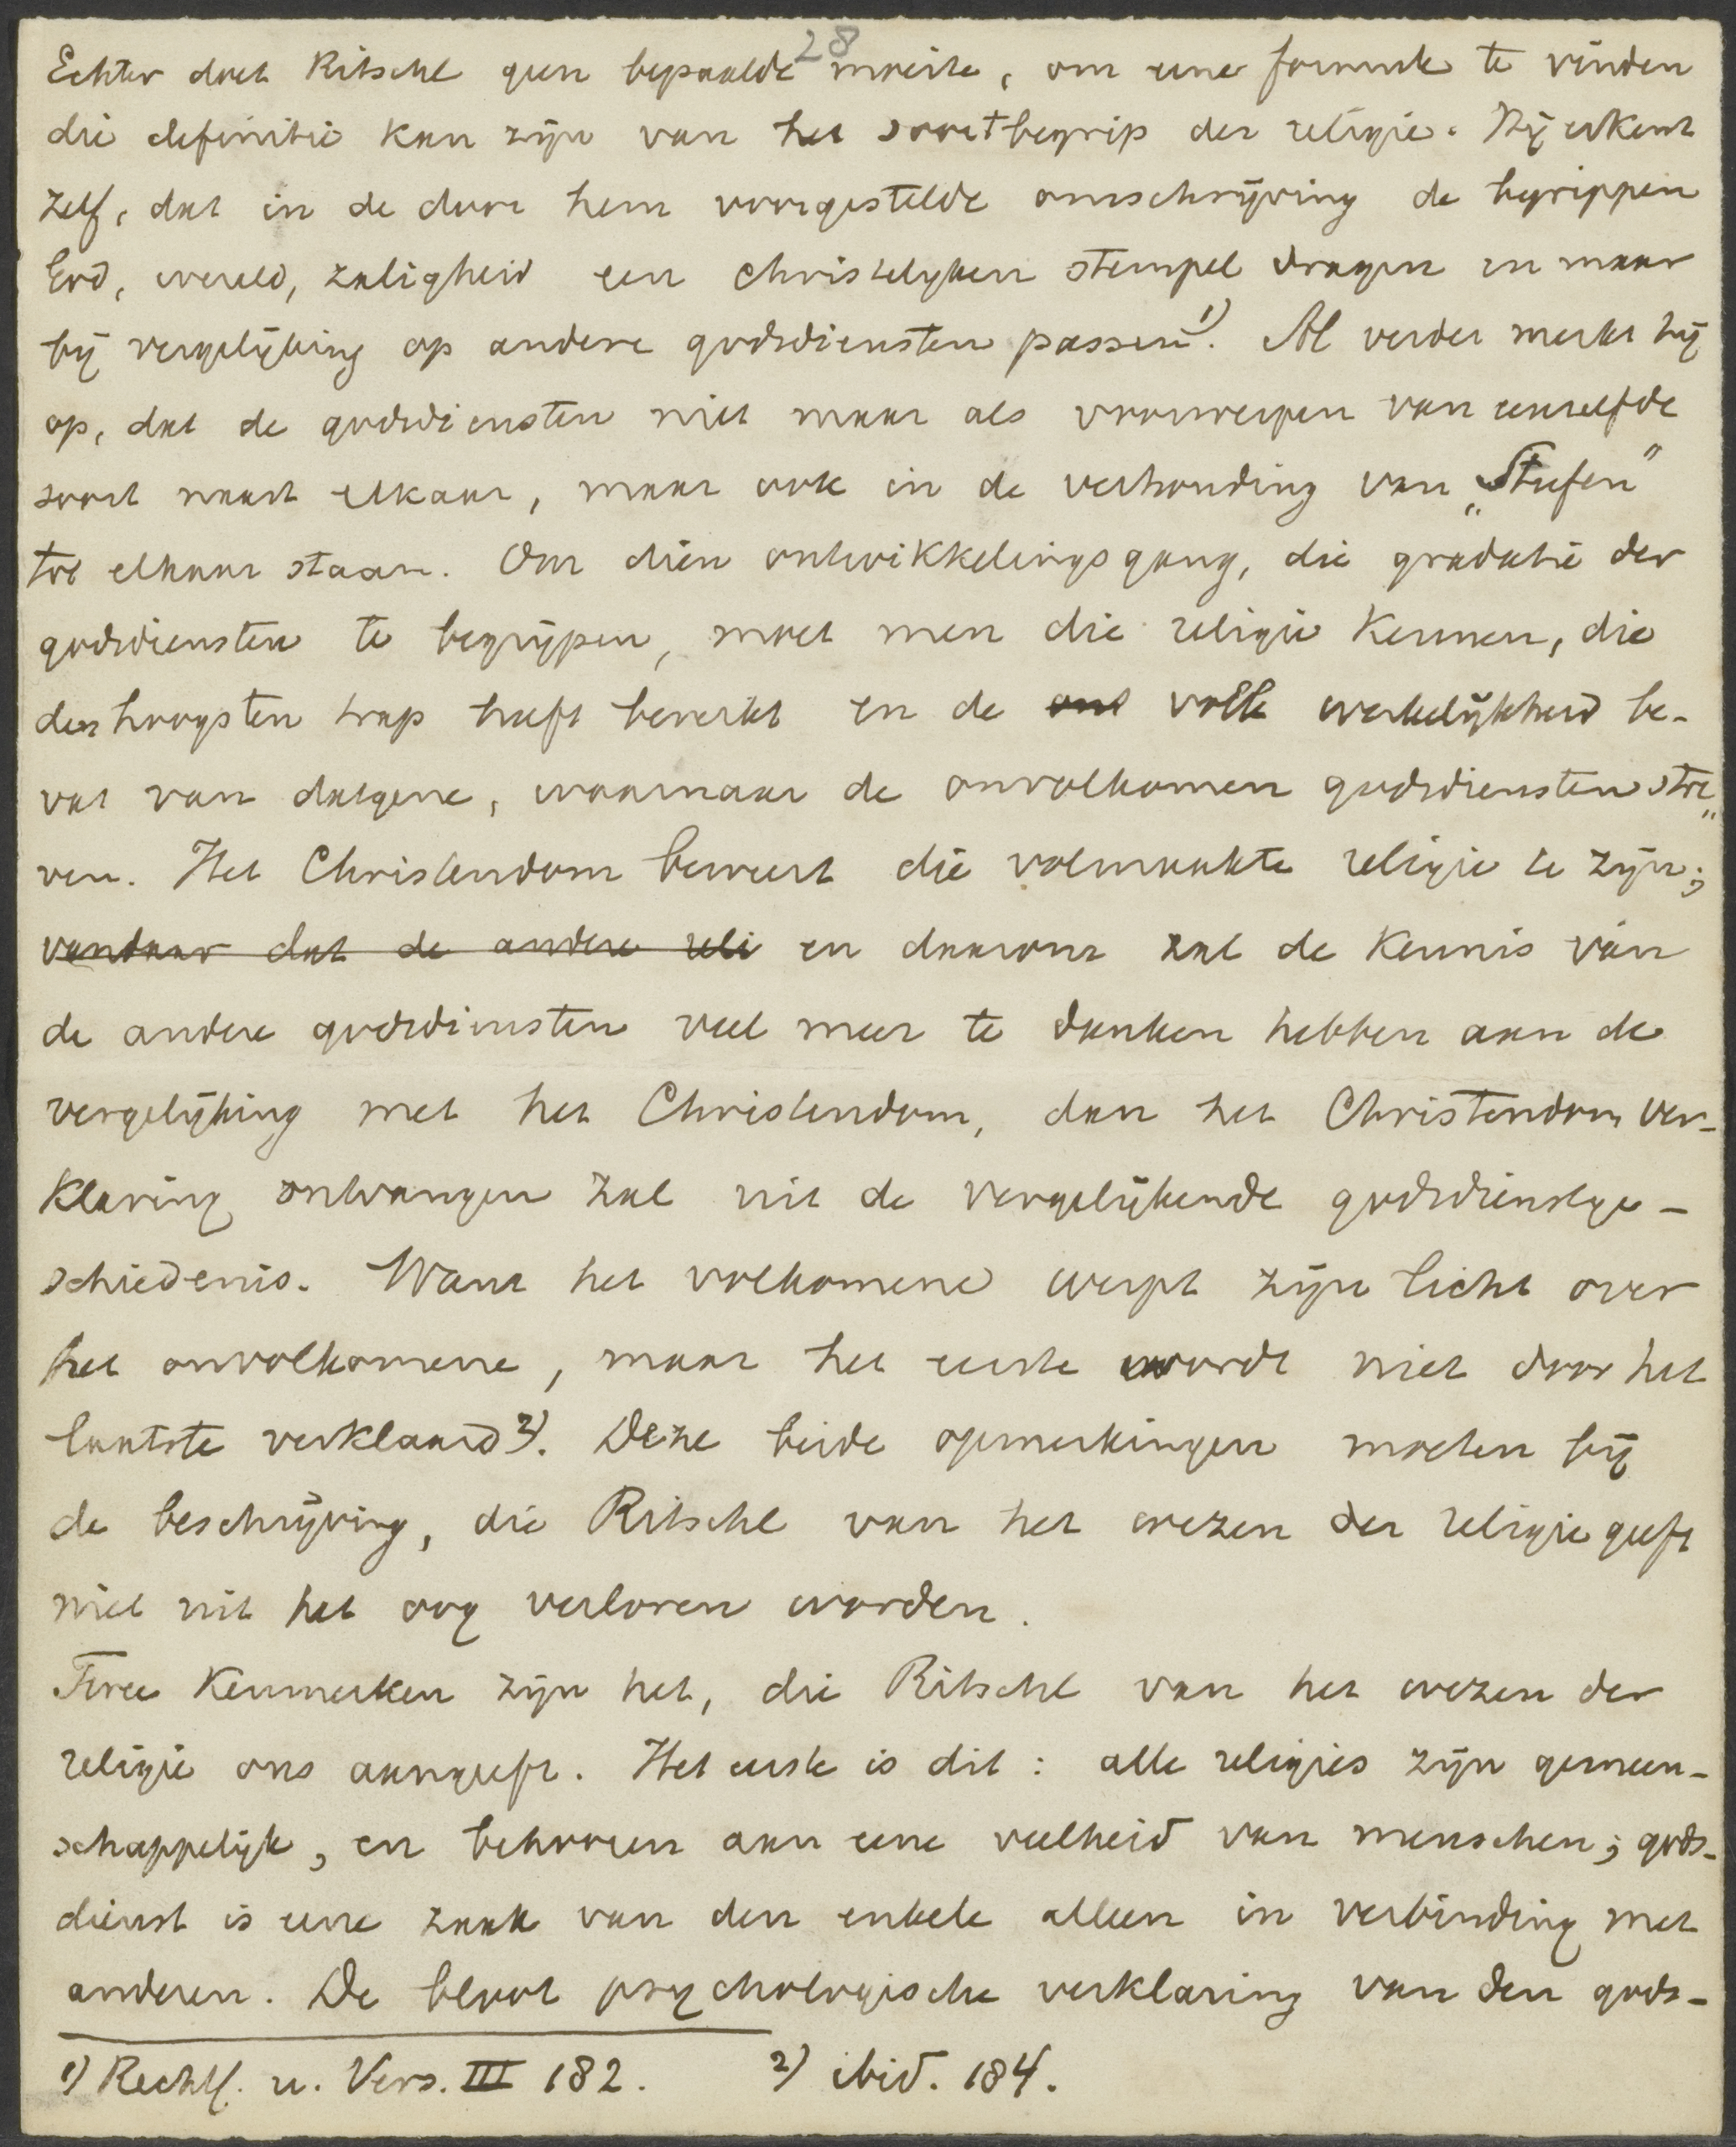 28
Echter doet Ritschl geen bepaalde moeite, om eene formule te vinden
die definitie kan zijn van het soortbegrip der religie. Hij erkent
zelf, dat in de door hem voorgestelde omschrijving de begrippen
God, wereld, zaligheid een christelyken stempel dragen en maar
bij vergelijking op andere godsdiensten passen 1). Al verder merkt hij
op, dat de godsdiensten niet maar als voorwerpen van eenzelfde
soort naast elkaar, maar ook in de verhouding van „Stufen"
tot elkaar staan. Om dien ontwikkelingsgang, die gradatie der
godsdiensten te begrijpen, moet men die religie kennen, die
den hoogsten trap heeft bereikt en de volle werkelijkheid be-
vat van datgene, waarnaar de onvolkomen godsdiensten stre„
ven. Het Christendom beweert die volmaakte religie te zijn;
vandaar dat de andere reli en daarom zal de kennis van
de andere godsdiensten veel meer te danken hebben aan de
vergelijking met het Christendom, dan het Christendom ver-
klaring ontvangen zal uit de vergelijkende godsdienstge-
schiedenis. Want het volkomene werpt zijn licht over
het onvolkomene, maar het eerste wordt niet door het
laatste verklaard 2). Deze beide opmerkingen moeten bij
de beschrijving, die Ritschl van het wezen der religie geeft
niet uit het oog verloren worden.
Twee kenmerken zijn het, die Ritschl van het wezen der
religie ons aangeeft. Het eerste is dit: alle religies zijn gemeen-
schappelijk, en behooren aan eene veelheid van menschen; gods-
dienst is eene zaak van den enkele alleen in verbinding met
anderen. De bloot psychologische verklaring van den gods-
1) Rechtf. u. Vers. III 182. 2) ibid. 184.